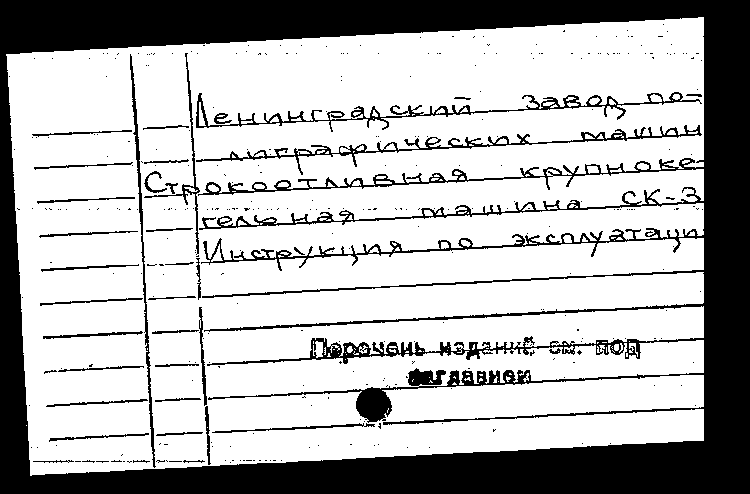 Ленинградский завод по-
лиграфических машин
Строкоотливная крупноке-
гельная машина СК-3
Инструкция по эксплуатаци
Перечень изданий см. под
заглавием